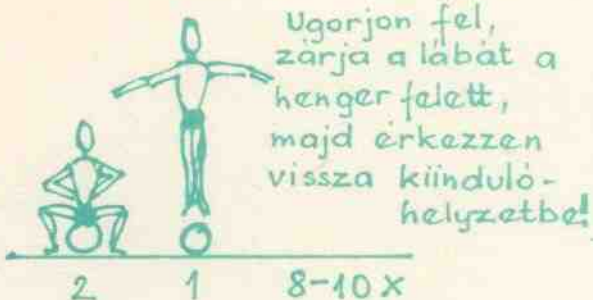 Ugorjon fel,
zárja a lábát a
henger felett,
majd érkezzen
vissza kiinduló-
helyzetbe!
2 1 8-10 x